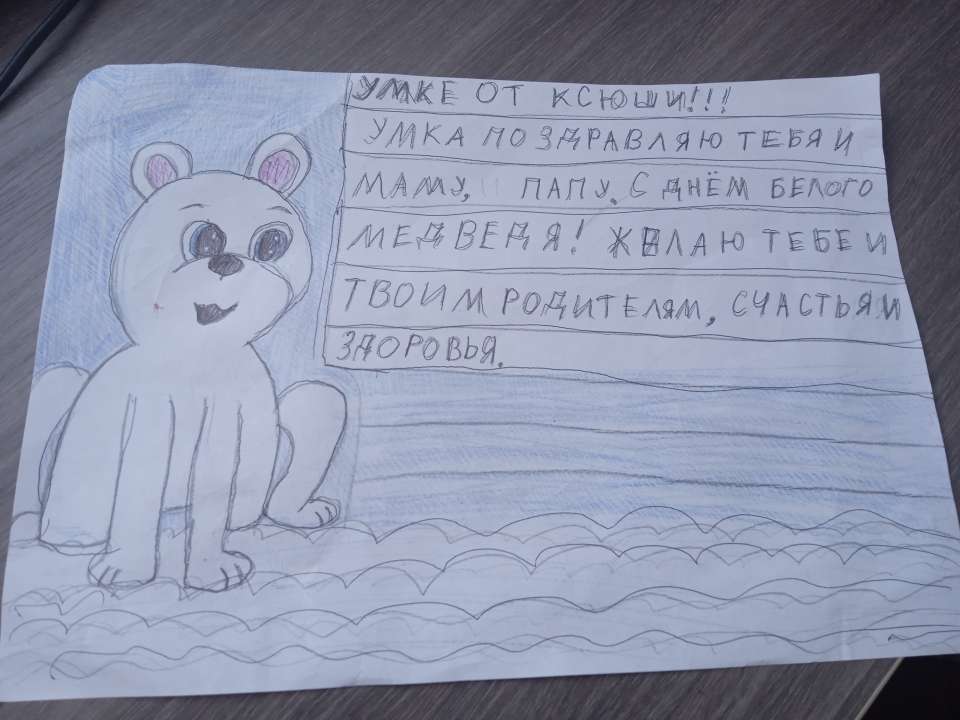 УМКЕ ОТ КСЮШИ!!!
УМКА ПОЗДРАВЛЯЮ ТЕБЯ И
МАМУ, ПАПУ. С ДНЁМ БЕЛОГО
МЕДВЕДЯ! ЖЕЛАЮ ТЕБЕ И
ТВОИМ РОДИТЕЛЯМ, СЧАСТЬЯ И
ЗДОРОВЬЯ.